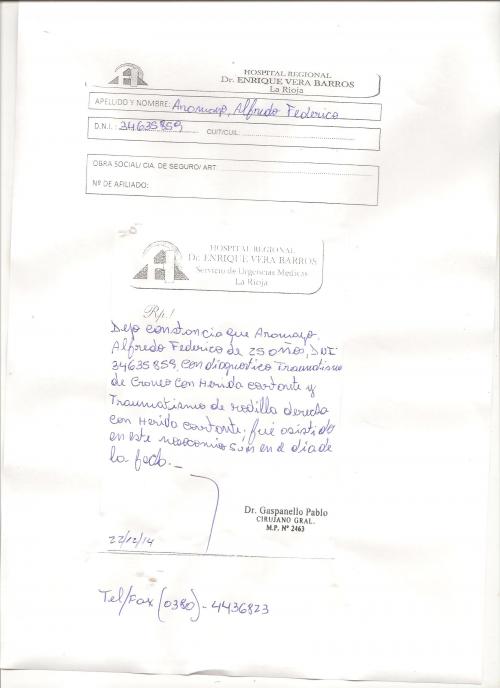 HOSPITAL REGIONAL
Dr. ENRIQUE VERA BARROS
La Rioja
APELLIDO Y NOMBRE: Aromayo, Alfredo Federico
D.N.I.: 34635859 CUIT/CUIL:
OBRA SOCIAL/ CIA. DE SEGURO/ ART:
Nº DE AFILIADO:
HOSPITAL REGIONAL
Dr. ENRIQUE VERA BARROS
Servicio de Urgencias Medicas
La Rioja
Rp.!
Dejo constancia que Aromayo,
Alfredo Federico de 25 años, DNI
34635859, con diagnostico Traumatismo
de Craneo con Herida cortante y
Traumatismo de rodilla derecha
con Herida cortante. fué asistido
en este en el dia de
la fecha._
Dr. Gaspanello Pablo
CIRUJANO GRAL.
M.P. Nº 2463
22/12/14
Tel/Fax (0380)-4436823